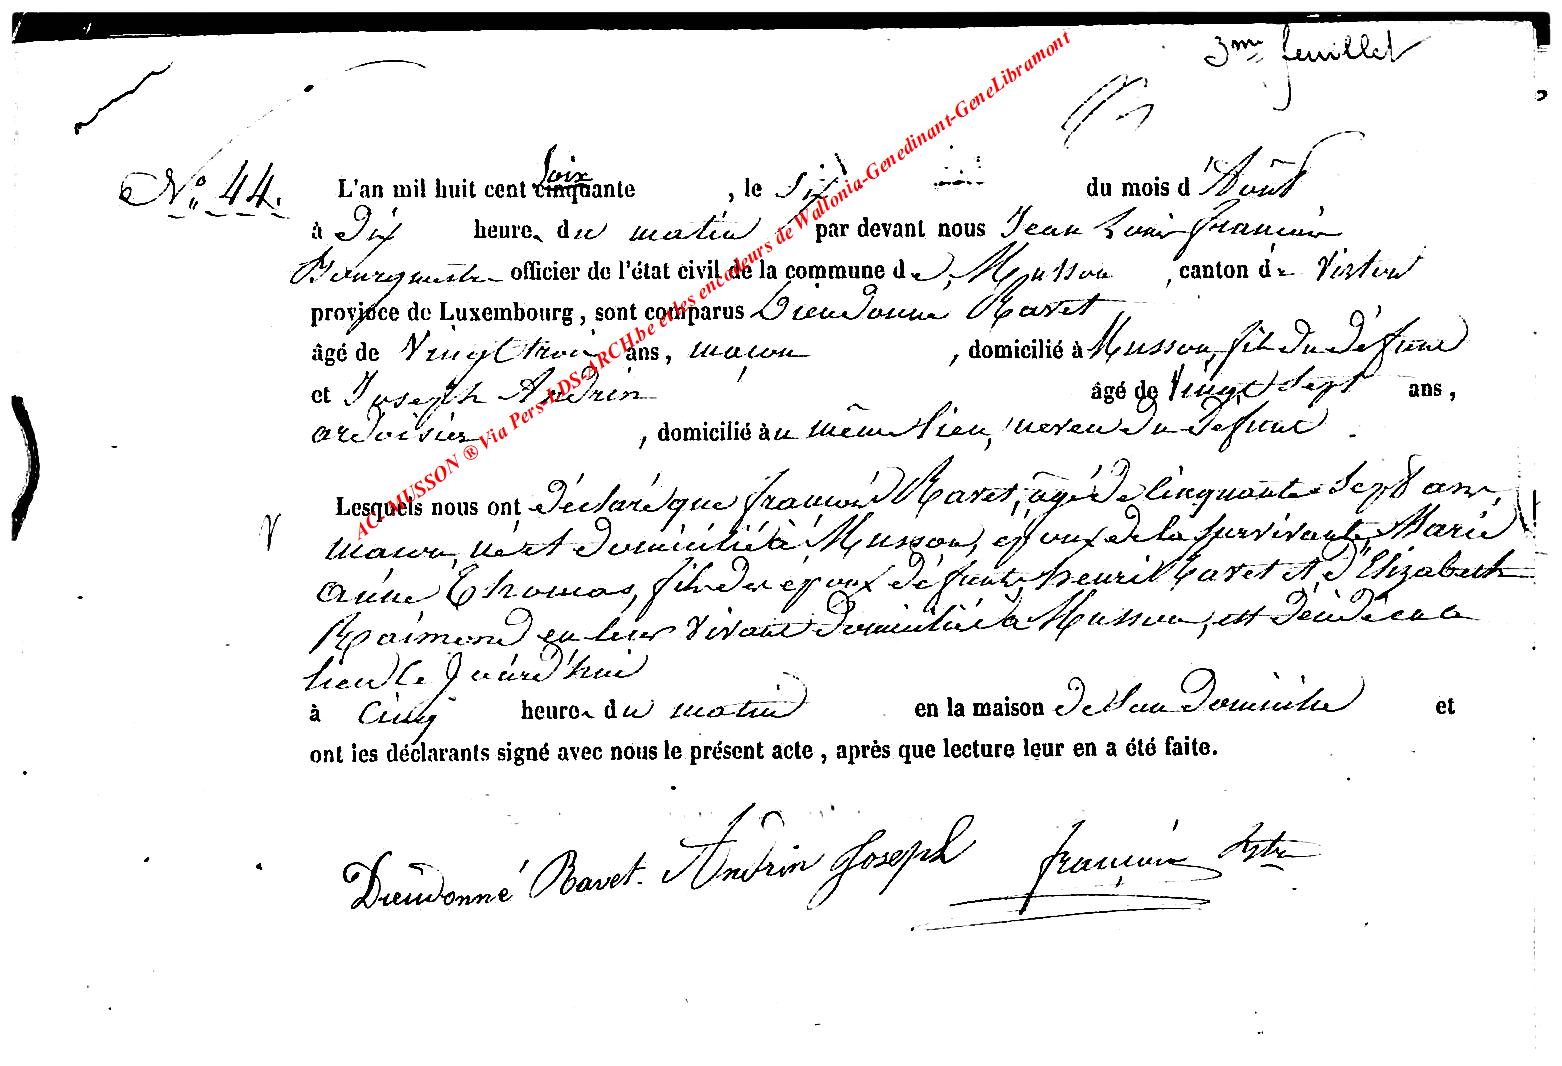 3me feuillet
No. 44.
L'an mil huit cent cinquante soix , le Six du mois d'Août
à Dix heures du matin par devant nous Jean Louis françois
Bourgmestre officier de l'état civil de la commune de Musson , canton de Virton
province de Luxembourg, sont comparus Dieudonné Ravet
âgé de Vingt trois ans, maçon , domicilié à Musson, fils du défunt
et Joseph Andrin âgé de Vingt Sept ans,
ardoisier , domicilié au même lieu, neveu du défunt .
Lesquels nous ont déclaré que françois Ravet, âgé de cinquante Sept ans,
maçon, né et domicilié à Musson, époux de la survivante Marie
anne Thomas, fils des époux défunts henri Ravet et d'Elizabeth
Raimond en leur vivant domiciliés à Musson, est décédé en ce
lieu ce Jourd'hui
à Cinq heures du matin en la maison de Son Domicile et
ont les déclarants signé avec nous le présent acte, après que lecture leur en a été faite.
Dieudonné Ravet. Andrin Joseph françois
AC-MUSSON ® Via Pers-LDS-ARCH.be et les encodeurs de Wallonia-Genedinant-GeneLibramont